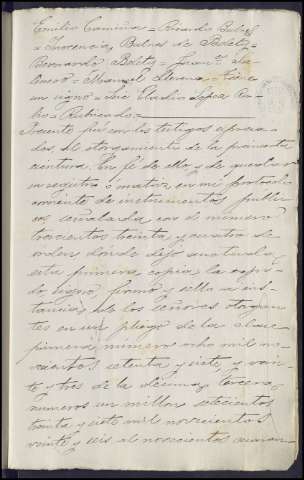 Emilio Camiña = Ricardo Buhig
= Florencia Bulias de Boletz =
Bernardo Boletz = Juan
= Manuel Llerena = Tiene
un signo = Lic Eladio Lopez
= Rubricado =
Presente fui con los testigos expresa-
dos al otorgamiento de la presente
escritura. En fe de ello y de quedar
su registro ó matriz en mi protocolo
corriente de instrumentos públi-
cos señalada con el número
trescientos treinta y cuatro de
orden, donde dejo anotada
esta primera copia la expi-
do, signo, firmo y sello á ins-
tancia de los señores otorgan-
tes en un pliego de la clase
primera, número ocho mil no-
vecientos setenta y siete y vein-
te y tres de la décima tercera
números un millon setecientos
treinta y siete mil novecientos
veinte y seis al novecientos cuaren-